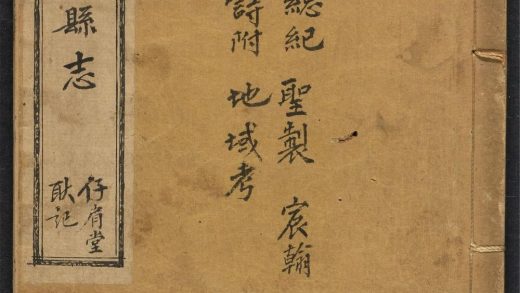 總紀 聖製 宸翰
詩附 地域考
縣志
仔肩堂
耿記